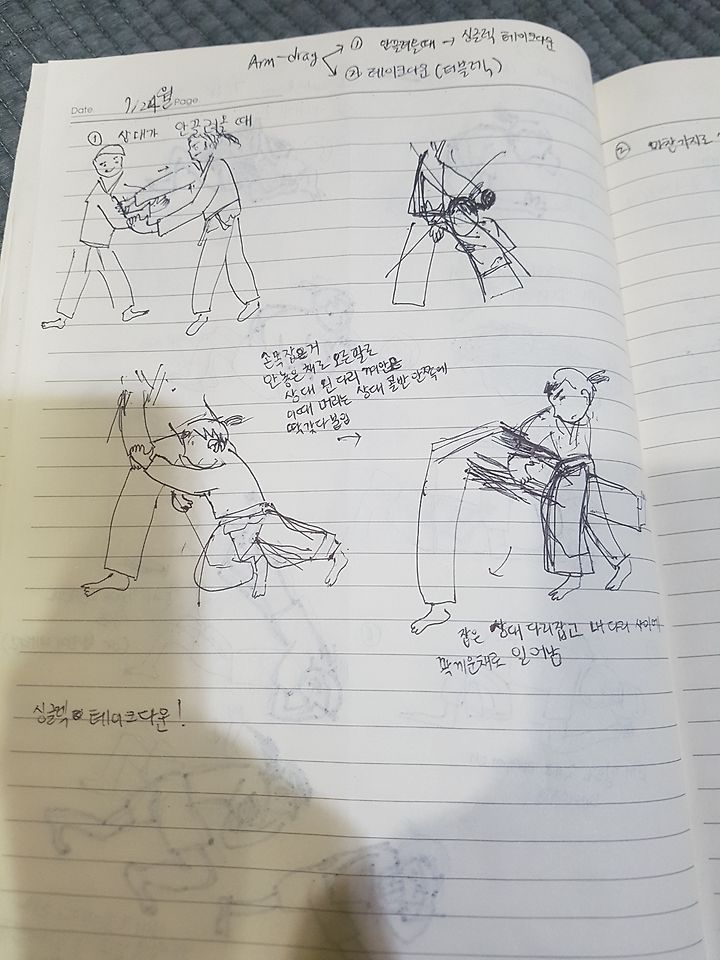 Arm-drag ① 안끌려올때 → 싱글렉 테이크다운
② 테이크다운 (더블렉)
Date 7/24월 Page
① 상대가 안끌려올 때
② 마찬가지로
손목잡은거
안놓은 채로 오른팔로
상대 왼다리 껴안음
이때 머리는 상대 골반 안쪽에
딱갖다붙임
→
잡은 상대 다리잡고 내 다리 사이에
꽉끼운채로 일어남
싱글렉 테이크다운!